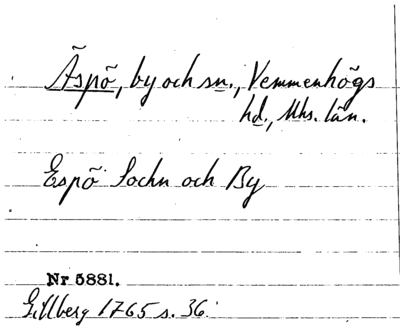 Äspö, by och sn., Vemmenhögs
hd., Mhs. län.
Espö Sochn och By
Nr 5881.
Gillberg 1765 s. 36.